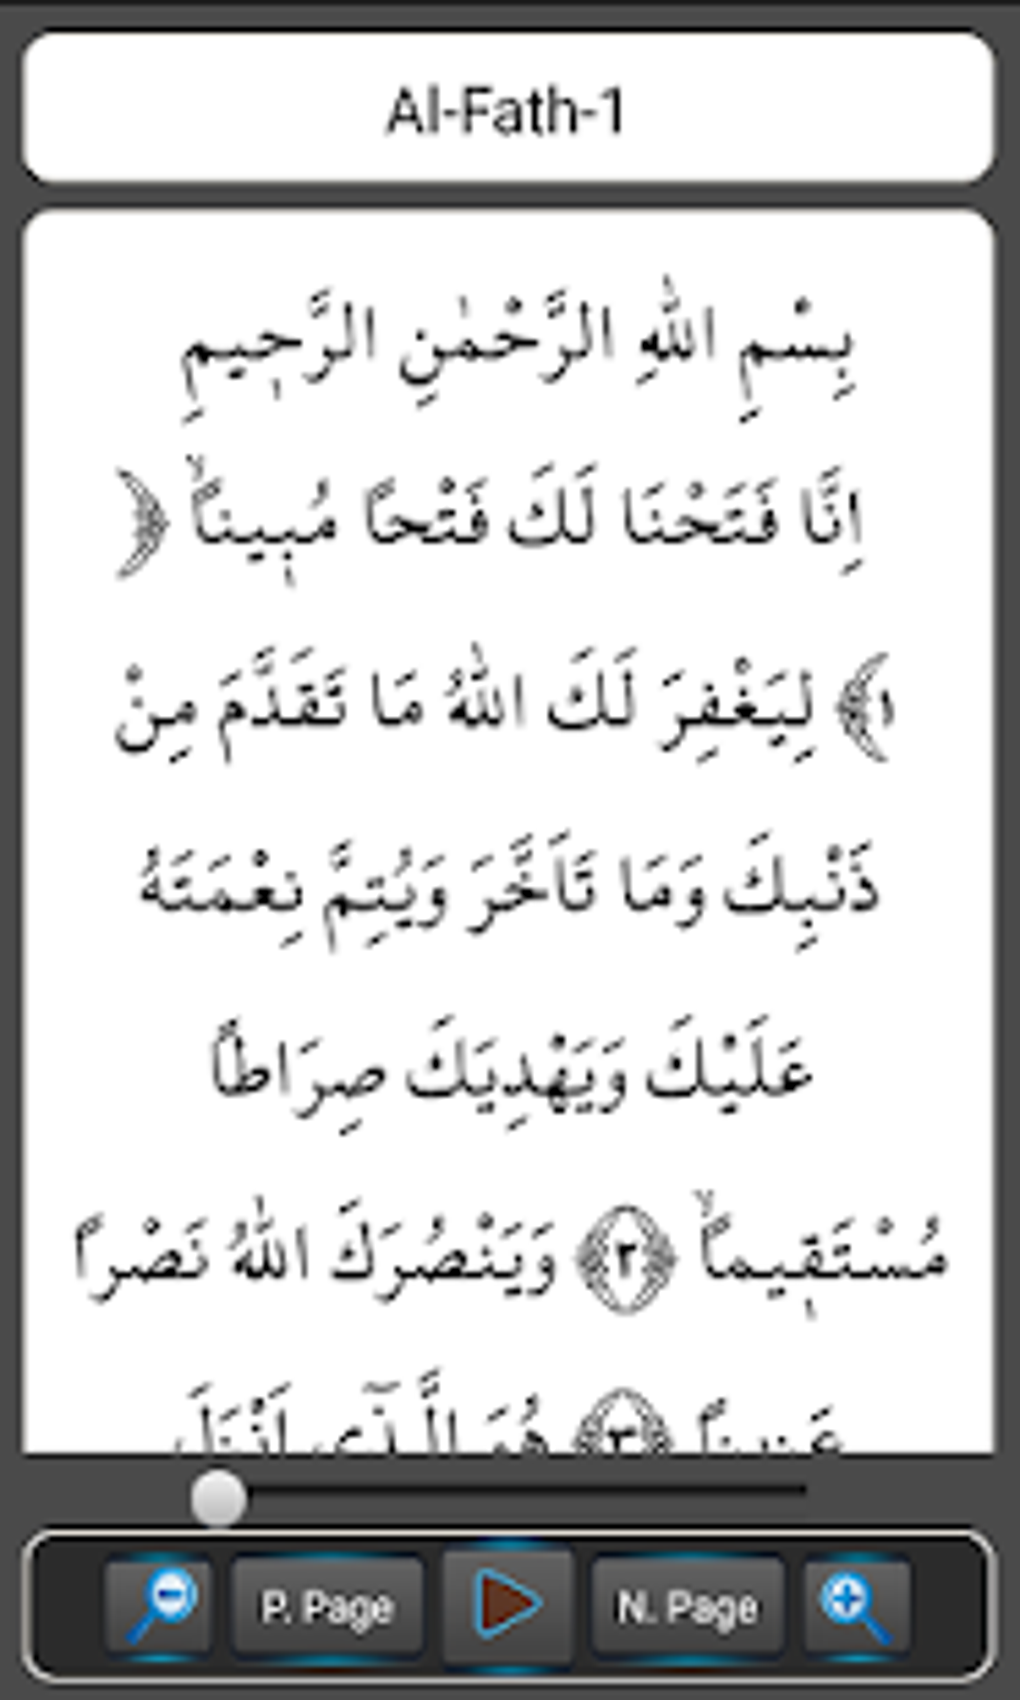 Al-Fath-1
بِسْمِ اللّٰهِ الرَّحْمٰنِ الرَّحٖيمِ
اِنَّا فَتَحْنَا لَكَ فَتْحًا مُبٖينًاۙ ﴿
١﴾ لِيَغْفِرَ لَكَ اللّٰهُ مَا تَقَدَّمَ مِنْ
ذَنْبِكَ وَمَا تَاَخَّرَ وَيُتِمَّ نِعْمَتَهُ
عَلَيْكَ وَيَهْدِيَكَ صِرَاطًا
مُسْتَقٖيمًاۙ ﴿٢﴾ وَيَنْصُرَكَ اللّٰهُ نَصْرًا
عَزٖيزًا ﴿٣﴾ هُوَ الَّـذٖٓى اَنْزَلَ
P. Page
N. Page